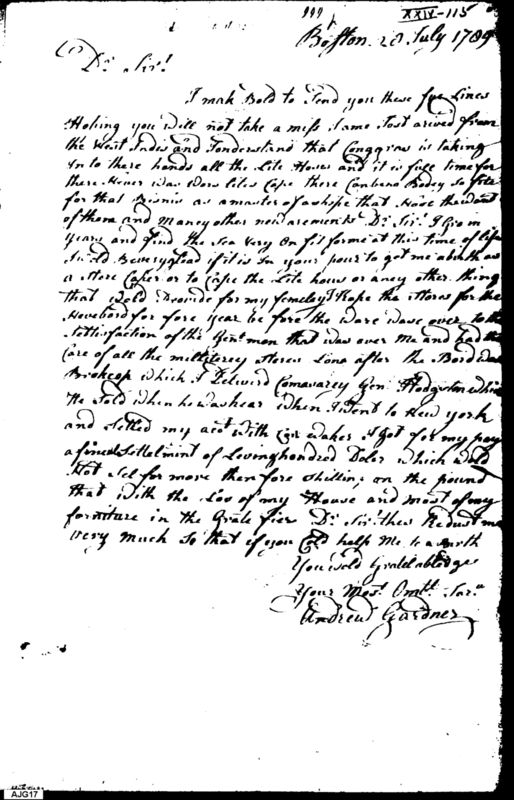 XXIV-115
Boston 28 July 1789
Dr. Sir!
I mak Bold to Send you these fue Lines
Hoking you will not take a miss I ame Jost arived from
the West Indes and Tonderstand that Congrass is taking
In to there hands all the Lite Houses and it is full time for
there Never was Wors Lites Cape there Canbeno Bodey So fite
for that Bisnis as a master of a whope that Have the want
of them and Maney other now arements Dr. Sir! I Grow in
Years and find the Sea Very On fit for me at this time of life
I wold Be very glad if it is In your pour to got me a birth as
a Store Caper or to Cape the Lite hous or aney other thing
that Wold Provide for my femeley I Kape the Stores for the
Naveybord for fore year be fore the ware wase over to the
Sattisfaction of the Gentmen that was over Me and had the
Care of all the milleterey Stores Long after the Bord was
Brokeop which I Delverd Comasarey Gen. Hodgdon which
He Sold when he was hear When I Went to New york
and Setled my acot With Waker I Got for my pay
a finel Settelment of Hondred Doler which wold
Not Sel for more then fore Shilling on the pound
that With the Los of my House and most of my
forniture in the Grate fier Dr. Sir! thes Redust me
very much So that if you Cold help Me to a birth
You wold Grately abledge
Your Most. Ombl. Sarn.
Andrew Gardner
AJG17